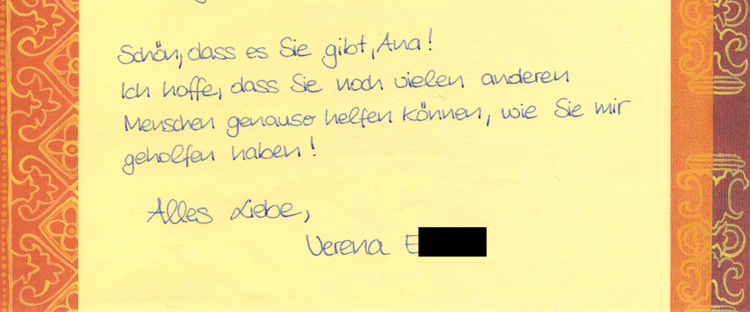 Schön, dass es Sie gibt, Ana!
Ich hoffe, dass Sie noch vielen anderen
Menschen genauso helfen können, wie Sie mir
geholfen haben!
Alles Liebe,
Verena E